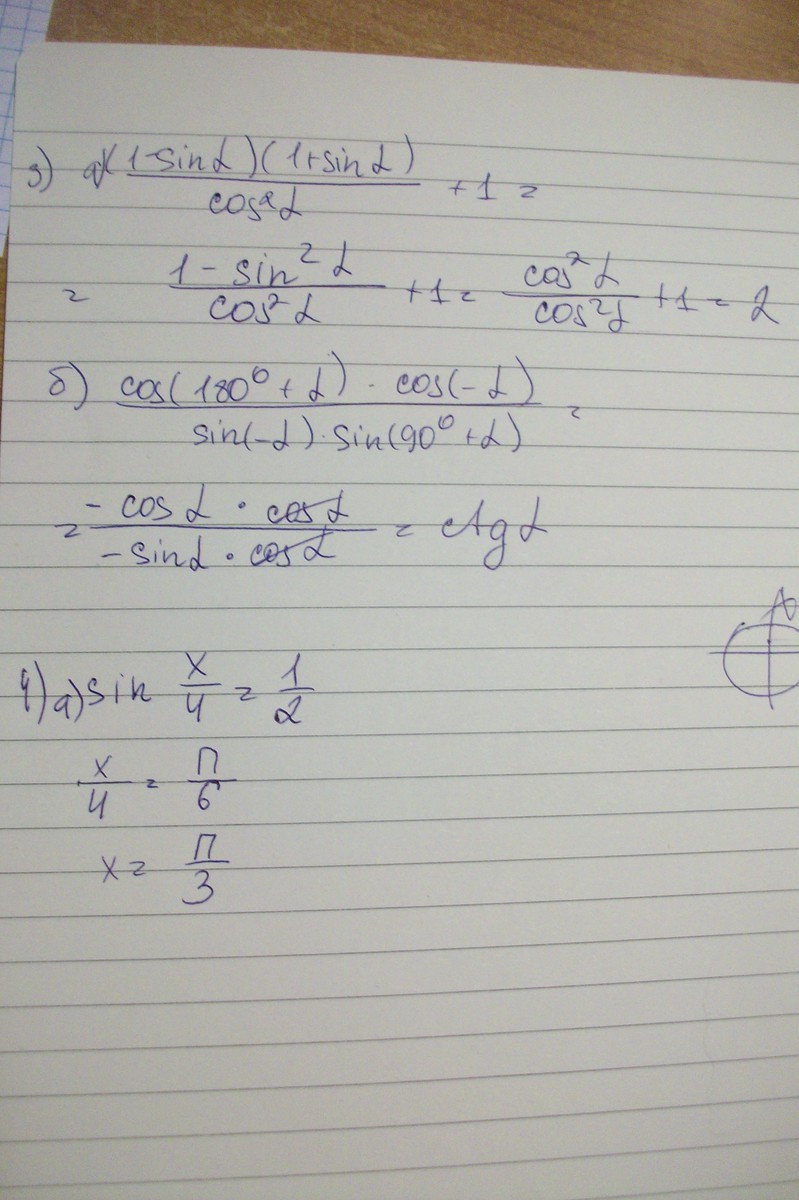 3) а) (1-sinα)(1+sinα) / cos²α + 1 =
= 1 - sin²α / cos²α + 1 = cos²α / cos²α + 1 = 2
б) cos(180° + α) · cos(-α) / sin(-α) · sin(90° + α) =
= - cosα · cosα / - sinα · cosα = ctgα
4) а) sin x/4 = 1/2
x/4 = П/6
x = П/3